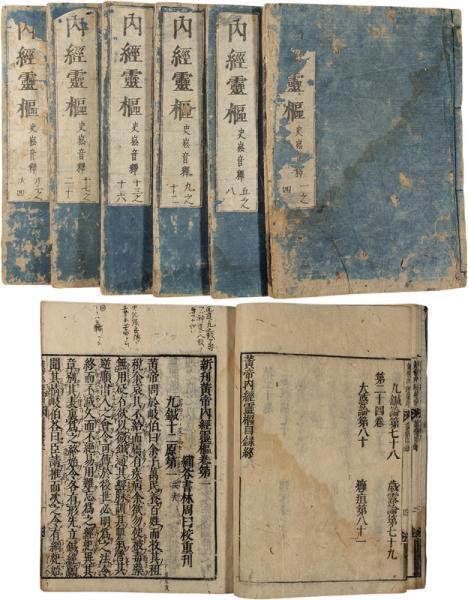 靈樞
史崧音釋
一之
四
內經靈樞
史崧音釋
五之
八
內經靈樞
史崧音釋
九之
十二
內經靈樞
史崧音釋
十三之
十六
內經靈樞
史崧音釋
十七之
二十
內經靈樞
史崧音釋
九鍼論第七十八 歲露論第七十九
第二十四卷
大惑論第八十 癰疽第八十一
黃帝內經靈樞目錄終
新刊黃帝內經靈樞卷第一
繡谷書林周曰校重刊
九鍼十二原第一 法天
黃帝問於岐伯曰余子萬民養百姓而收其租
稅余哀其不給而屬有疾病余欲勿使被毒藥
無用砭石欲以微鍼通其經脉調其血氣營其
逆順出入之會令可傳於後世必明爲之法令
終而不滅久而不絕易用難忘爲之經紀異其
章別其表裏爲之終始令各有形先立鍼經願
聞其情岐伯答曰臣請推而次之令有綱紀始